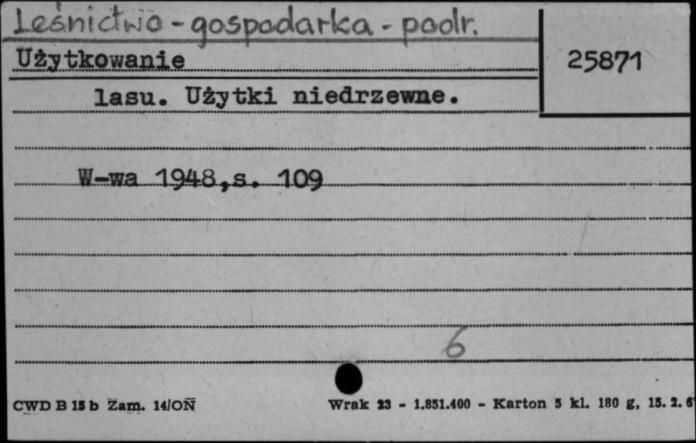 Leśnictwo - gospodarka - podr.
25871
Użytkowanie
lasu. Użytki niedrzewne.
W-wa 1948,s. 109
6
CWD B 15 b Zam. 14/ON Wrak 23 - 1.851.400 - Karton 5 kl. 180 g, 15. 2. 6